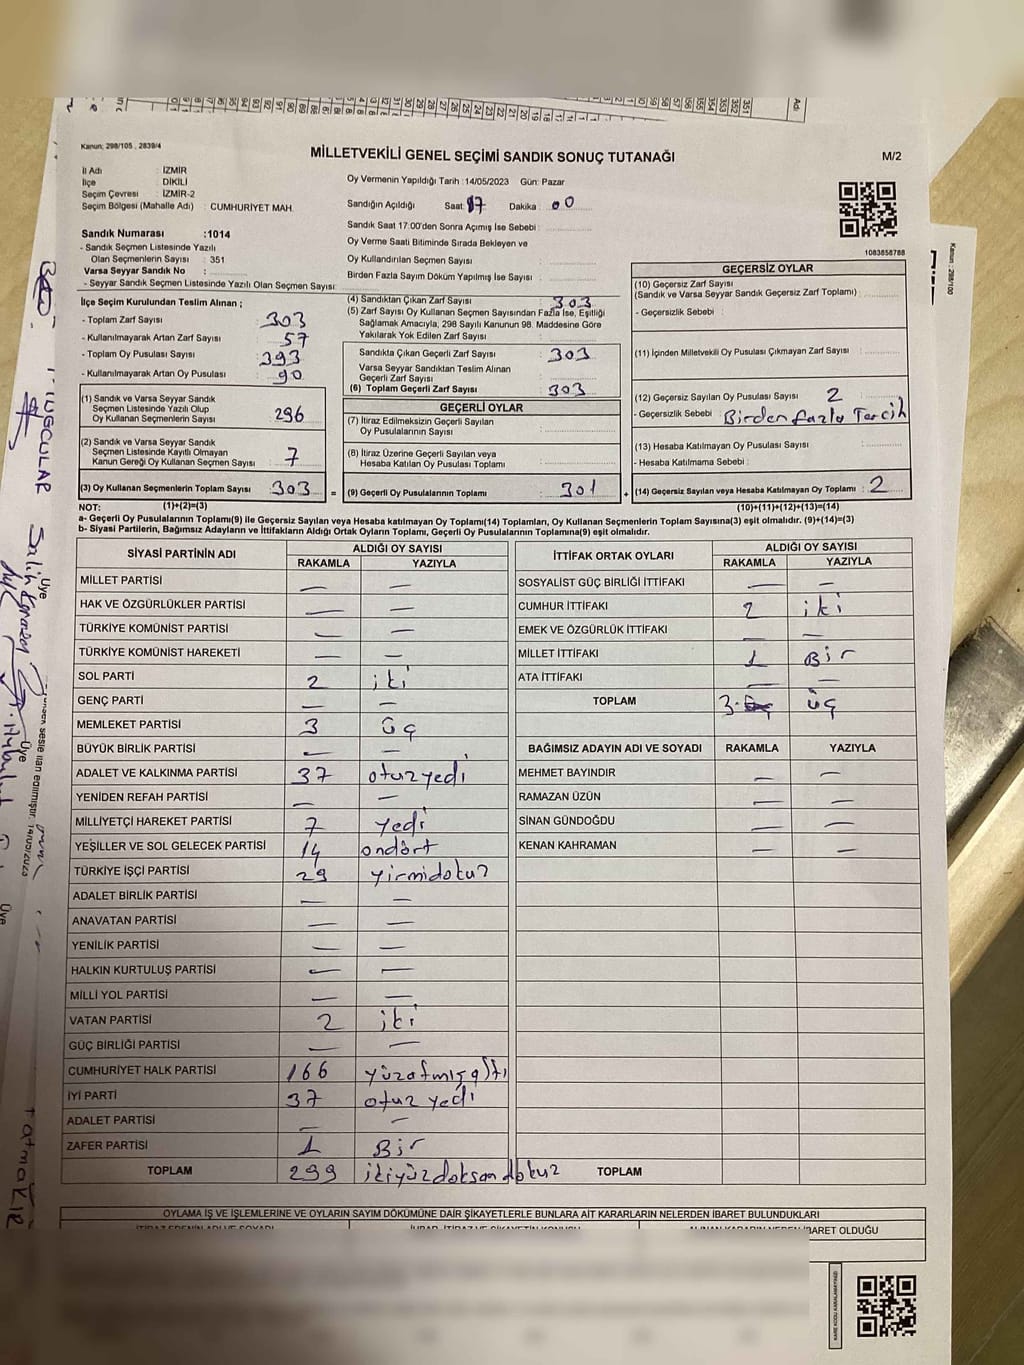 Kanun: 298/105 , 2839/4
MİLLETVEKİLİ GENEL SEÇİMİ SANDIK SONUÇ TUTANAĞI
M/2
İl Adı : İZMİR
İlçe : DİKİLİ
Seçim Çevresi : İZMİR-2
Seçim Bölgesi (Mahalle Adı) : CUMHURİYET MAH.
Oy Vermenin Yapıldığı Tarih :14/05/2023 Gün: Pazar
Sandığın Açıldığı Saat: 17 Dakika : 00
Sandık Saat 17:00'den Sonra Açımış İse Sebebi :
Oy Verme Saati Bitiminde Sırada Bekleyen ve
Oy Kullandırılan Seçmen Sayısı :
Birden Fazla Sayım Döküm Yapılmış İse Sayısı :
Sandık Numarası :1014
- Sandık Seçmen Listesinde Yazılı
Olan Seçmenlerin Sayısı : 351
Varsa Seyyar Sandık No :
- Seyyar Sandık Seçmen Listesinde Yazılı Olan Seçmen Sayısı:
1083858788
İlçe Seçim Kurulundan Teslim Alınan ;
- Toplam Zarf Sayısı : 303
- Kullanılmayarak Artan Zarf Sayısı : 57
- Toplam Oy Pusulası Sayısı : 393
- Kullanılmayarak Artan Oy Pusulası : 90
(1) Sandık ve Varsa Seyyar Sandık
Seçmen Listesinde Yazılı Olup
Oy Kullanan Seçmenlerin Sayısı : 296
(2) Sandık ve Varsa Seyyar Sandık
Seçmen Listesinde Kayıtlı Olmayan
Kanun Gereği Oy Kullanan Seçmen Sayısı : 7
(3) Oy Kullanan Seçmenlerin Toplam Sayısı : 303
(4) Sandıktan Çıkan Zarf Sayısı : 303
(5) Zarf Sayısı Oy Kullanan Seçmen Sayısından Fazla İse, Eşitliği
Sağlamak Amacıyla, 298 Sayılı Kanunun 98. Maddesine Göre
Yakılarak Yok Edilen Zarf Sayısı :
Sandıkta Çıkan Geçerli Zarf Sayısı : 303
Varsa Seyyar Sandıktan Teslim Alınan
Geçerli Zarf Sayısı :
(6) Toplam Geçerli Zarf Sayısı : 303
GEÇERLİ OYLAR
(7) İtiraz Edilmeksizin Geçerli Sayılan
Oy Pusulalarının Sayısı :
(8) İtiraz Üzerine Geçerli Sayılan veya
Hesaba Katılan Oy Pusulası Toplamı :
= (9) Geçerli Oy Pusulalarının Toplamı : 301
GEÇERSİZ OYLAR
(10) Geçersiz Zarf Sayısı
(Sandık ve Varsa Seyyar Sandık Geçersiz Zarf Toplamı) :
- Geçersizlik Sebebi :
(11) İçinden Milletvekili Oy Pusulası Çıkmayan Zarf Sayısı :
(12) Geçersiz Sayılan Oy Pusulası Sayısı : 2
- Geçersizlik Sebebi : Birden fazla Tercih
(13) Hesaba Katılmayan Oy Pusulası Sayısı :
- Hesaba Katılmama Sebebi :
+ (14) Geçersiz Sayılan veya Hesaba Katılmayan Oy Toplamı : 2
NOT: (1)+(2)=(3)
(10)+(11)+(12)+(13)=(14)
a- Geçerli Oy Pusulalarının Toplamı(9) ile Geçersiz Sayılan veya Hesaba katılmayan Oy Toplamı(14) Toplamları, Oy Kullanan Seçmenlerin Toplam Sayısına(3) eşit olmalıdır. (9)+(14)=(3)
b- Siyasi Partilerin, Bağımsız Adayların ve İttifakların Aldığı Ortak Oyların Toplamı, Geçerli Oy Pusulalarının Toplamına(9) eşit olmalıdır.
SİYASİ PARTİNİN ADI ALDIĞI OY SAYISI
RAKAMLA YAZIYLA
MİLLET PARTİSİ — —
HAK VE ÖZGÜRLÜKLER PARTİSİ — —
TÜRKİYE KOMÜNİST PARTİSİ — —
TÜRKİYE KOMÜNİST HAREKETİ — —
SOL PARTİ 2 iki
GENÇ PARTİ — —
MEMLEKET PARTİSİ 3 üç
BÜYÜK BİRLİK PARTİSİ — —
ADALET VE KALKINMA PARTİSİ 37 otuzyedi
YENİDEN REFAH PARTİSİ — —
MİLLİYETÇİ HAREKET PARTİSİ 7 yedi
YEŞİLLER VE SOL GELECEK PARTİSİ 14 ondört
TÜRKİYE İŞÇİ PARTİSİ 29 yirmidokuz
ADALET BİRLİK PARTİSİ — —
ANAVATAN PARTİSİ — —
YENİLİK PARTİSİ — —
HALKIN KURTULUŞ PARTİSİ — —
MİLLİ YOL PARTİSİ — —
VATAN PARTİSİ 2 iki
GÜÇ BİRLİĞİ PARTİSİ — —
CUMHURİYET HALK PARTİSİ 166 yüzatmışaltı
İYİ PARTİ 37 otuz yedi
ADALET PARTİSİ — —
ZAFER PARTİSİ 1 Bir
TOPLAM 299 ikiyüzdoksandokuz
İTTİFAK ORTAK OYLARI ALDIĞI OY SAYISI
RAKAMLA YAZIYLA
SOSYALİST GÜÇ BİRLİĞİ İTTİFAKI — —
CUMHUR İTTİFAKI 2 iki
EMEK VE ÖZGÜRLÜK İTTİFAKI — —
MİLLET İTTİFAKI 1 Bir
ATA İTTİFAKI — —
TOPLAM 3 üç
BAĞIMSIZ ADAYIN ADI VE SOYADI RAKAMLA YAZIYLA
MEHMET BAYINDIR — —
RAMAZAN ÜZÜN — —
SİNAN GÜNDOĞDU — —
KENAN KAHRAMAN — —
TOPLAM
OYLAMA İŞ VE İŞLEMLERİNE VE OYLARIN SAYIM DÖKÜMÜNE DAİR ŞİKAYETLERLE BUNLARA AİT KARARLARIN NELERDEN İBARET BULUNDUKLARI
İBARET OLDUĞU
Kanun : 298/100
Üye
Üye
Üye